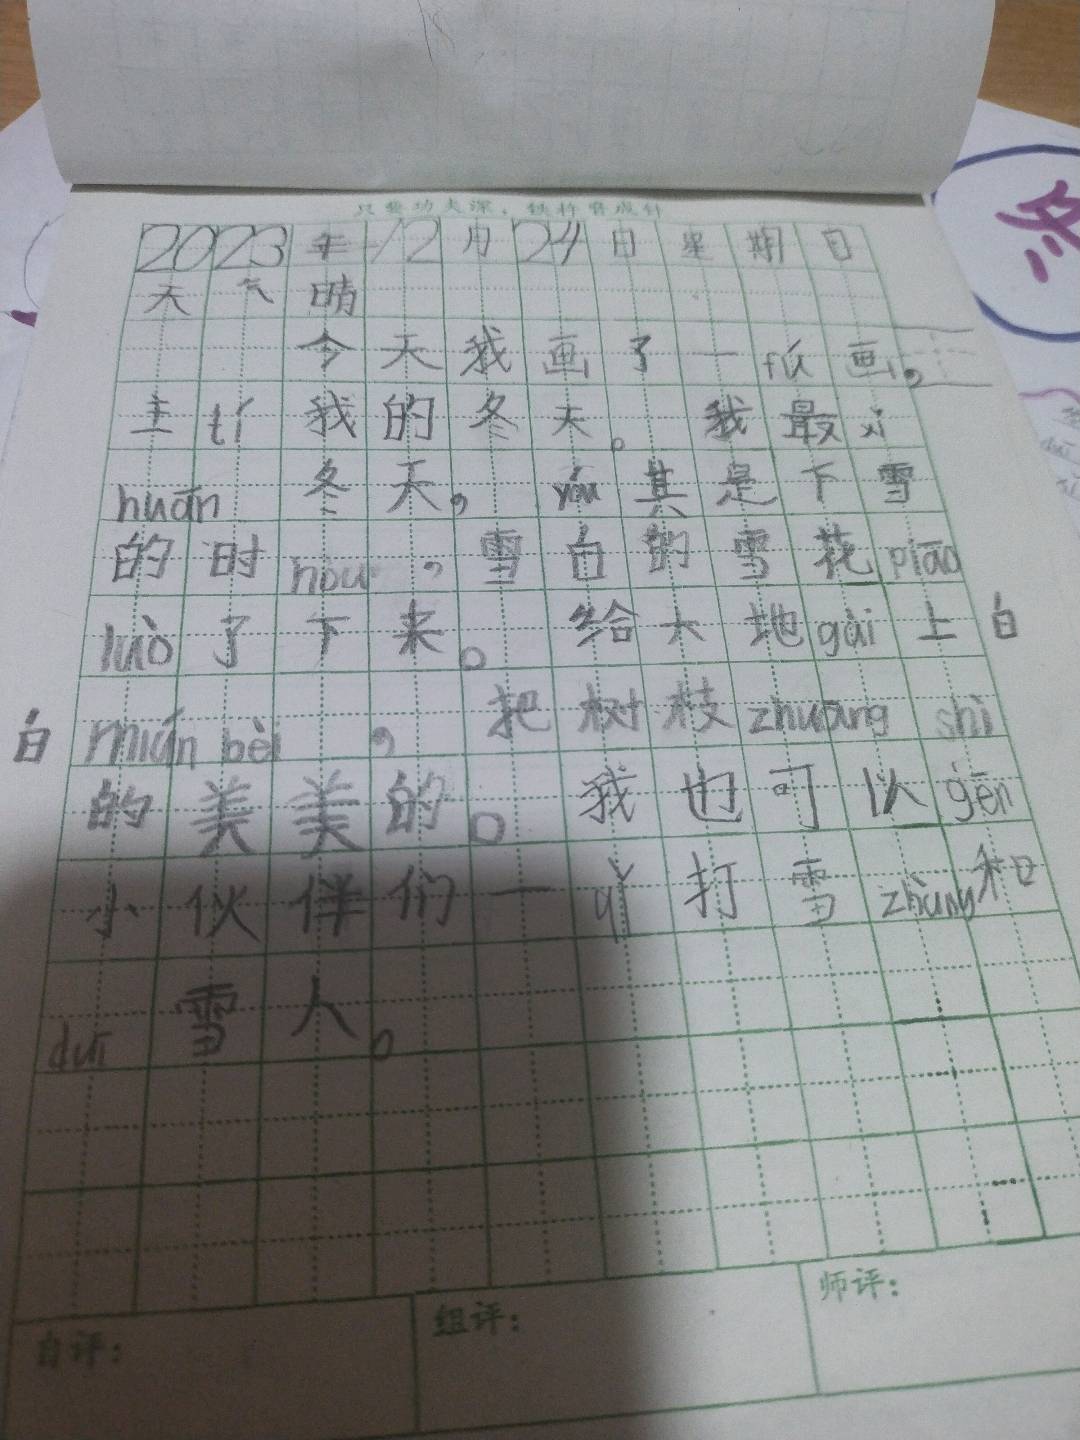 只要功夫深，铁杵磨成针
2023年12月24日星期日
天气晴
今天我画了一fú画，
主tí我的冬天。我最xǐ
huān冬天，yóu其是下雪
的时hou，雪白的雪花piāo
luò了下来。给大地gài上白
白mián bèi，把树枝zhuāng shì
的美美的。我也可以gēn
小伙伴们一qǐ打雪zhàng和
duī雪人。
自评： 组评： 师评：